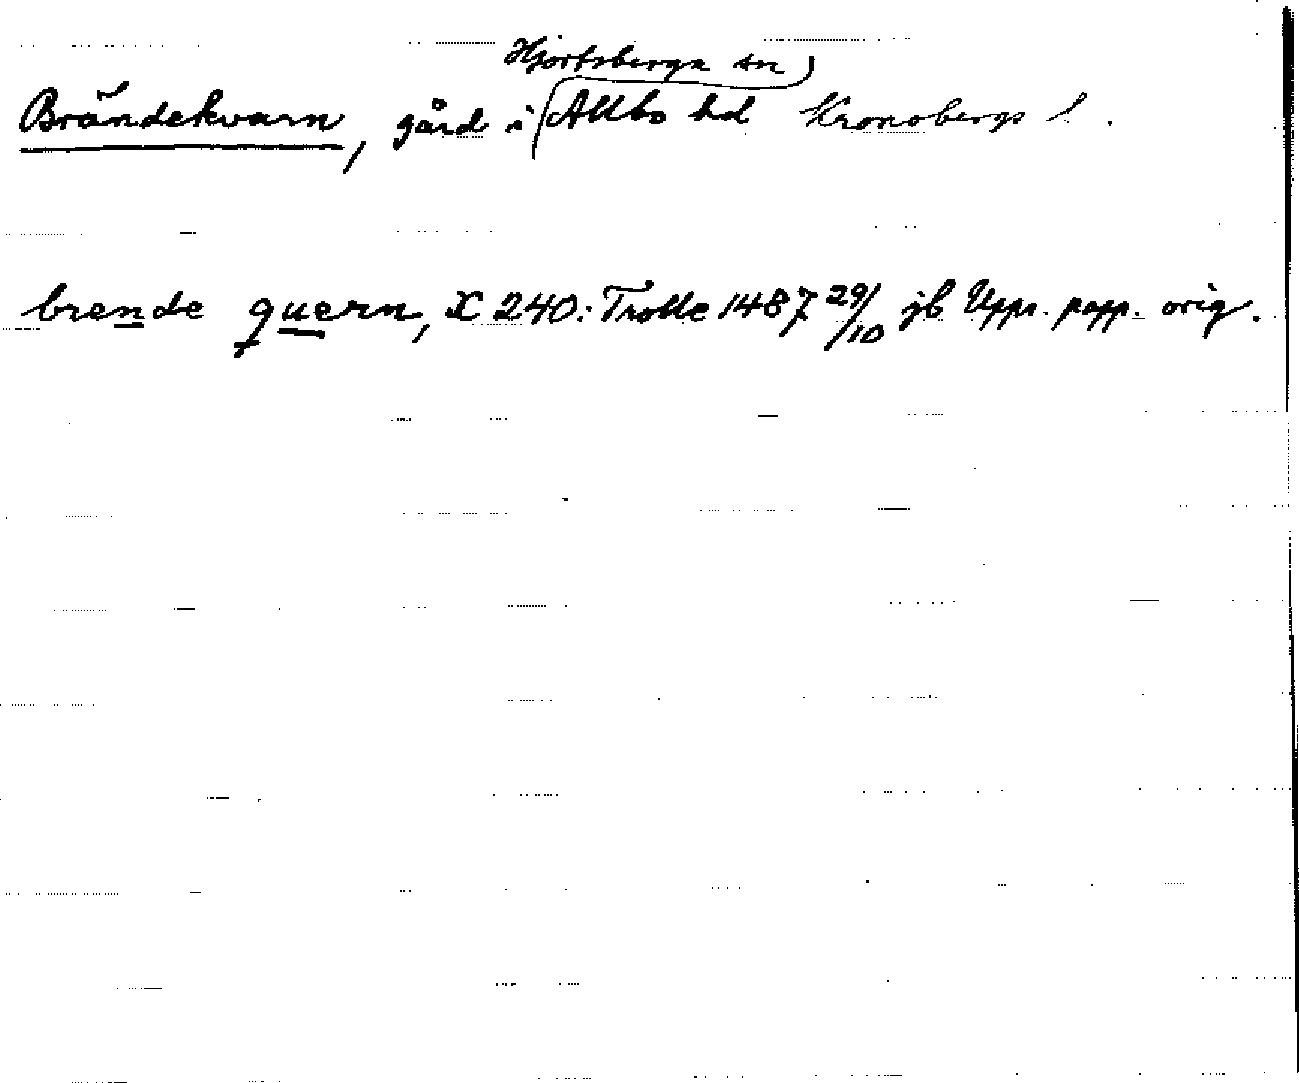 Hjortsberga sn
Brändekvarn, gård i Allbo hd Kronobergs l.
brende quern, X 240: Trolle 1487 29/10 jb Upps. papp. orig.